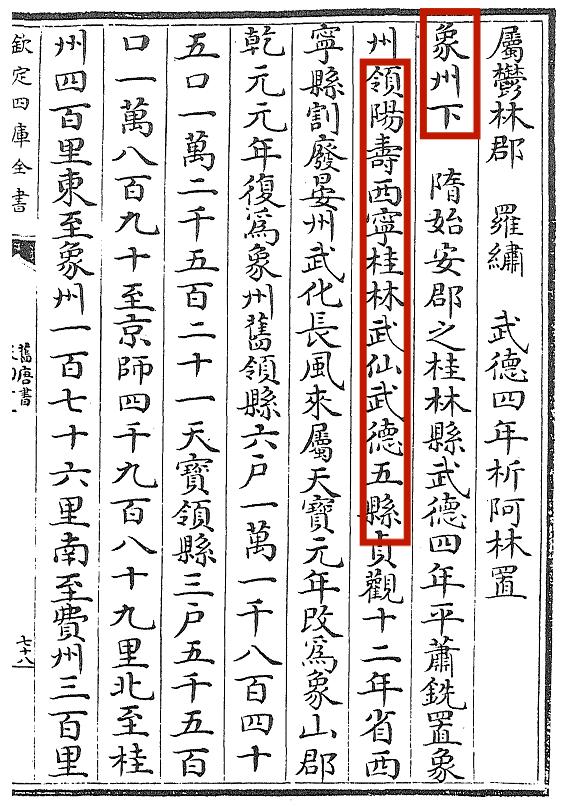 屬鬱林郡　羅繡　武德四年析阿林置
象州下　隋始安郡之桂林縣武德四年平蕭銑置象
州領陽壽西寧桂林武仙武德五縣貞觀十二年省西
寧縣割廢晏州武化長風來屬天寶元年改爲象山郡
乾元元年復爲象州舊領縣六戶一萬一千八百四十
五口一萬二千五百二十一天寶領縣三戶五千五百
口一萬八百九十至京師四千九百八十九里北至桂
州四百里東至象州一百七十六里南至費州三百里
欽定四庫全書
舊唐書
七十八